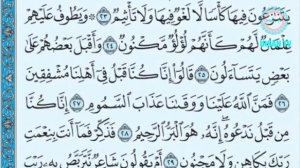 يَتَنَٰزَعُونَ فِيهَا كَأْسًا لَّا لَغْوٌ فِيهَا وَلَا تَأْثِيمٌ ۝٢٣ وَيَطُوفُ عَلَيْهِمْ
لَهُمْ كَأَنَّهُمْ لُؤْلُؤٌ مَّكْنُونٌ ۝٢٤ وَأَقْبَلَ بَعْضُهُمْ عَلَىٰ
بَعْضٍ يَتَسَآءَلُونَ ۝٢٥ قَالُوٓا۟ إِنَّا كُنَّا قَبْلُ فِىٓ أَهْلِنَا مُشْفِقِينَ
۝٢٦ فَمَنَّ ٱللَّهُ عَلَيْنَا وَوَقَىٰنَا عَذَابَ ٱلسَّمُومِ ۝٢٧ إِنَّا كُنَّا
مِن قَبْلُ نَدْعُوهُ إِنَّهُۥ هُوَ ٱلْبَرُّ ٱلرَّحِيمُ ۝٢٨ فَذَكِّرْ فَمَآ أَنتَ بِنِعْمَتِ
رَبِّكَ بِكَاهِنٍ وَلَا مَجْنُونٍ ۝٢٩ أَمْ يَقُولُونَ شَاعِرٌ نَّتَرَبَّصُ بِهِۦ رَيْبَ